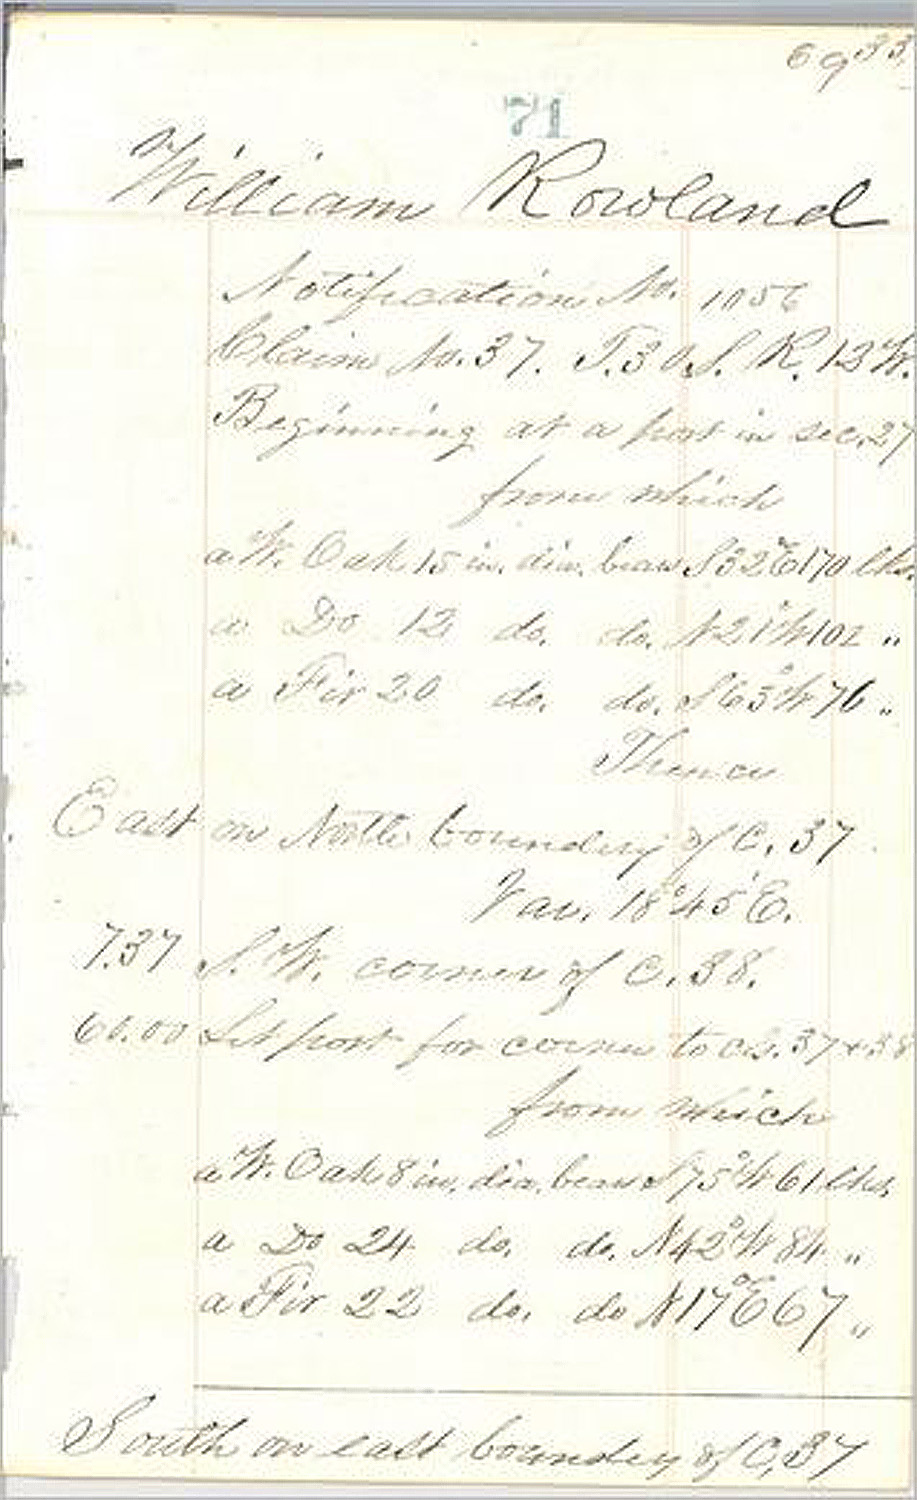 6933
71
William Rowland
Notification No. 1056
Claim No. 37. T. 30 S. R. 12 W.
Beginning at a post in sec. 27
from which
a W. Oak 15 in. dia. bears S 32° E 170 lks.
a Do 12 do. do. N 21° W 102 "
a Fir 20 do. do. S 63° W 76 "
Thence
East on North boundery of C. 37
Var. 18° 45' E.
7.37 S. W. corner of C. 38.
60.00 Set post for corner to cls. 37 & 38
from which
a W. Oak 8 in. dia. bears S 75° W 61 lks.
a Do 24 do. do. N 42° W 84 "
a Fir 22 do. do N 17° E 67 "
South on east boundery of C, 37